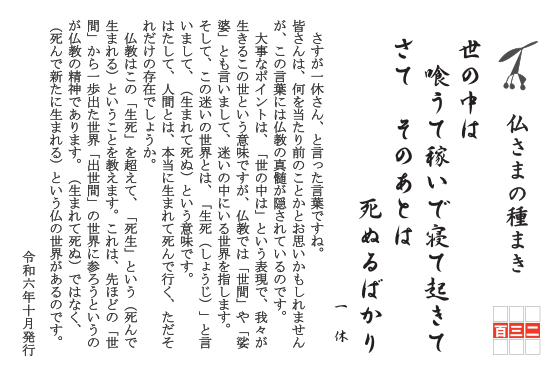 仏さまの種まき
百三二
世の中は
喰うて稼いで寝て起きて
さて　そのあとは
死ぬるばかり
一　休
さすが一休さん、と言った言葉ですね。
皆さんは、何を当たり前のことかとお思いかもしれません
が、この言葉には仏教の真髄が隠されているのです。
大事なポイントは、「世の中は」という表現で、我々が
生きるこの世という意味ですが、仏教では「世間」や「娑
婆」とも言いまして、迷いの中にいる世界を指します。
そして、この迷いの世界とは、「生死（しょうじ）」と言
いまして、（生まれて死ぬ）という意味です。
はたして、人間とは、本当に生まれて死んで行く、ただそ
れだけの存在でしょうか。
仏教はこの「生死」を超えて、「死生」という（死んで
生まれる）ということを教えます。これは、先ほどの「世
間」から一歩出た世界「出世間」の世界に参ろうというの
が仏教の精神であります。（生まれて死ぬ）ではなく、
（死んで新たに生まれる）という仏の世界があるのです。
令和六年十月発行